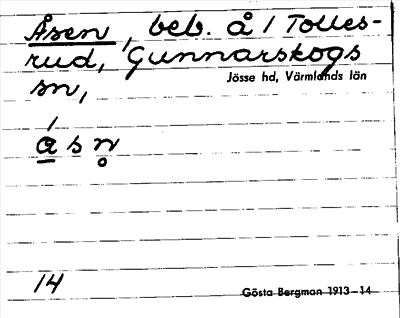 Åsen, beb. å / Tolles-
rud, Gunnarskogs
Jösse hd, Värmlands län
sn,
åsn̥
14
Gösta Bergman 1913–14